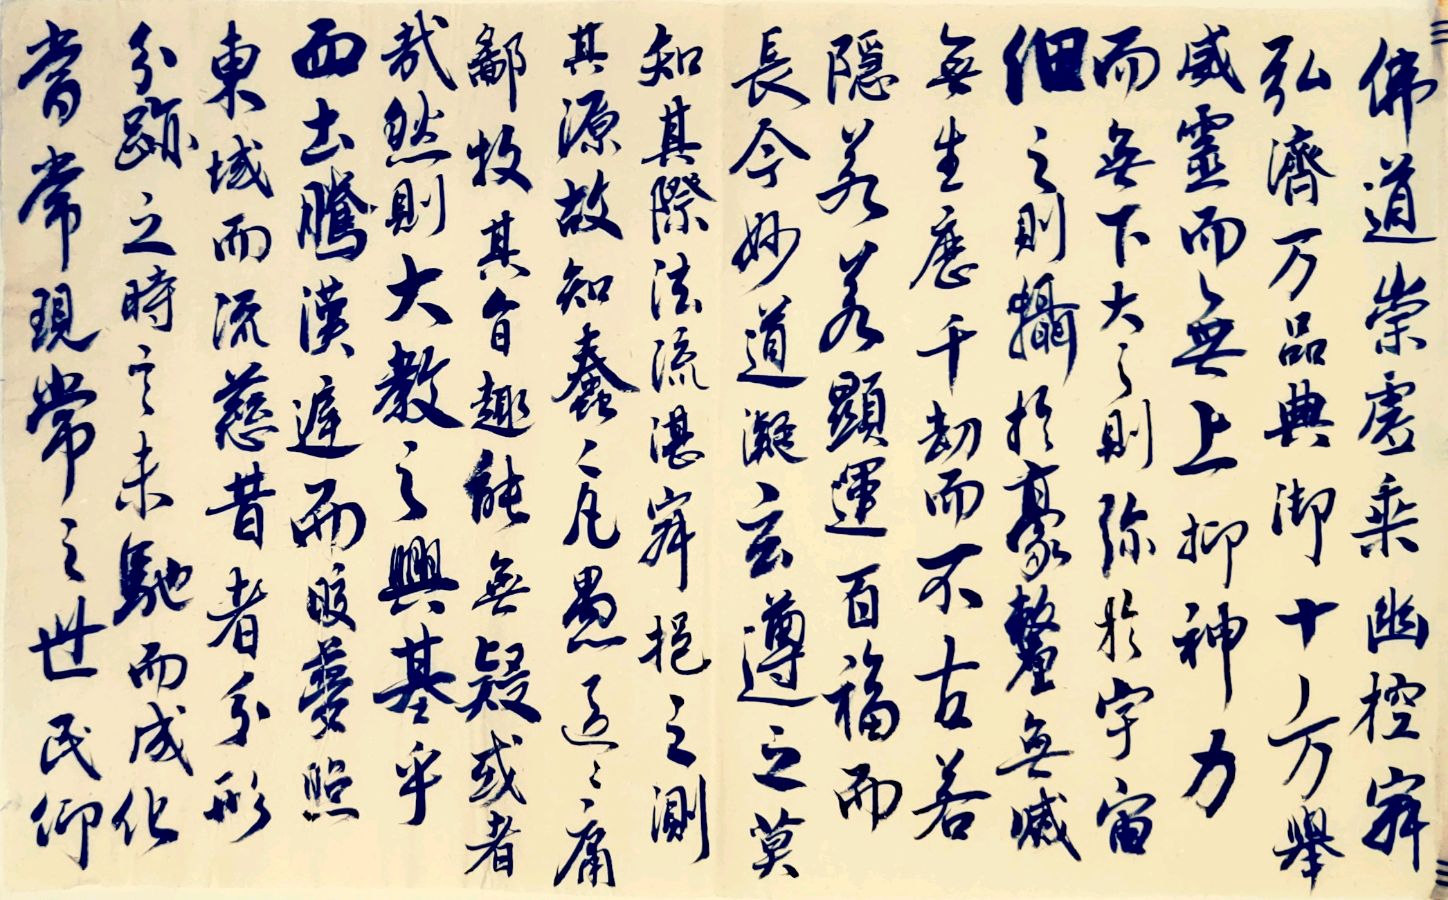 佛道崇虚乘幽控寂
弘濟万品典御十方舉
威靈而無上抑神力
而無下大之則弥於宇宙
細之則攝於豪釐無滅
無生歷千劫而不古若
隱若若顯運百福而
長今妙道凝玄遵之莫
知其際法流湛寂挹之測
其源故知蠢〻凡愚區〻庸
鄙投其旨趣能無疑或者
哉然則大教之興基乎
西土騰漢庭而皎夢照
東域而流慈昔者分形
分跡之時言未馳而成化
當常現常之世民仰